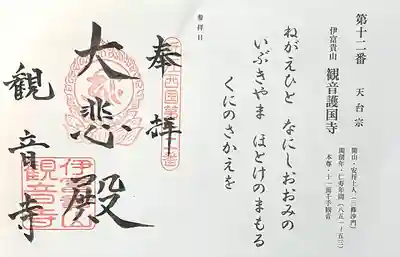 第十二番 天台宗
伊富貴山 観音護国寺
開山・安祥上人(三修沙門)
開創年・仁寿年間(八五一-五三)
本尊・十一面千手観音
ねがえひと なにしおおみの
いぶきやま ほとけのまもる
くにのさかえを
参拝日
奉拝
大悲殿
観音寺
伊富貴山
観音寺